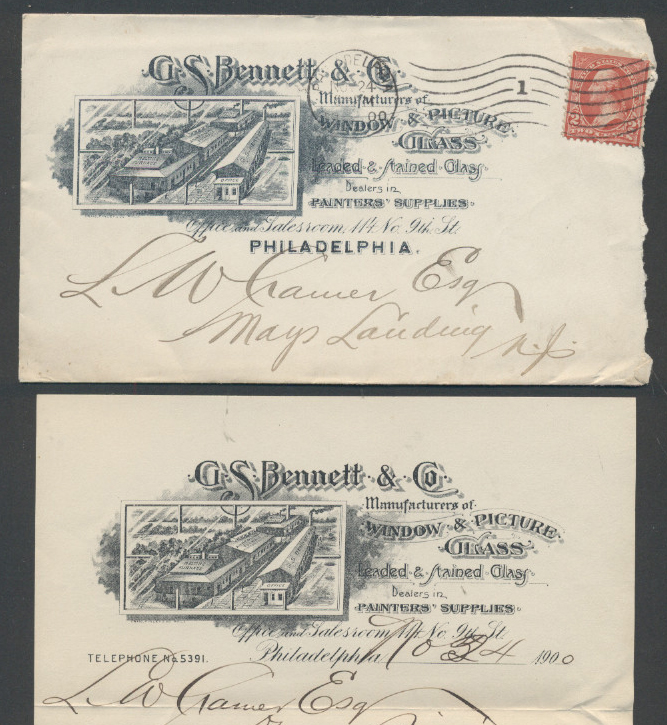 G. S. Bennett & Co.
Manufacturers of
WINDOW & PICTURE
GLASS
Leaded & Stained Glass
Dealers in
PAINTERS' SUPPLIES
OFFICE
Office and Salesroom, 114 No. 9th St.
PHILADELPHIA.
24
1
2
2
L. W. Cramer Esq
Mays Landing
N.J.
G. S. Bennett & Co.
Manufacturers of
WINDOW & PICTURE
GLASS
Leaded & Stained Glass
Dealers in
PAINTERS' SUPPLIES
OFFICE
Office and Salesroom, 114 No. 9th St.
TELEPHONE No. 5391.
Philadelphia, 24 1900
L. W. Cramer Esq